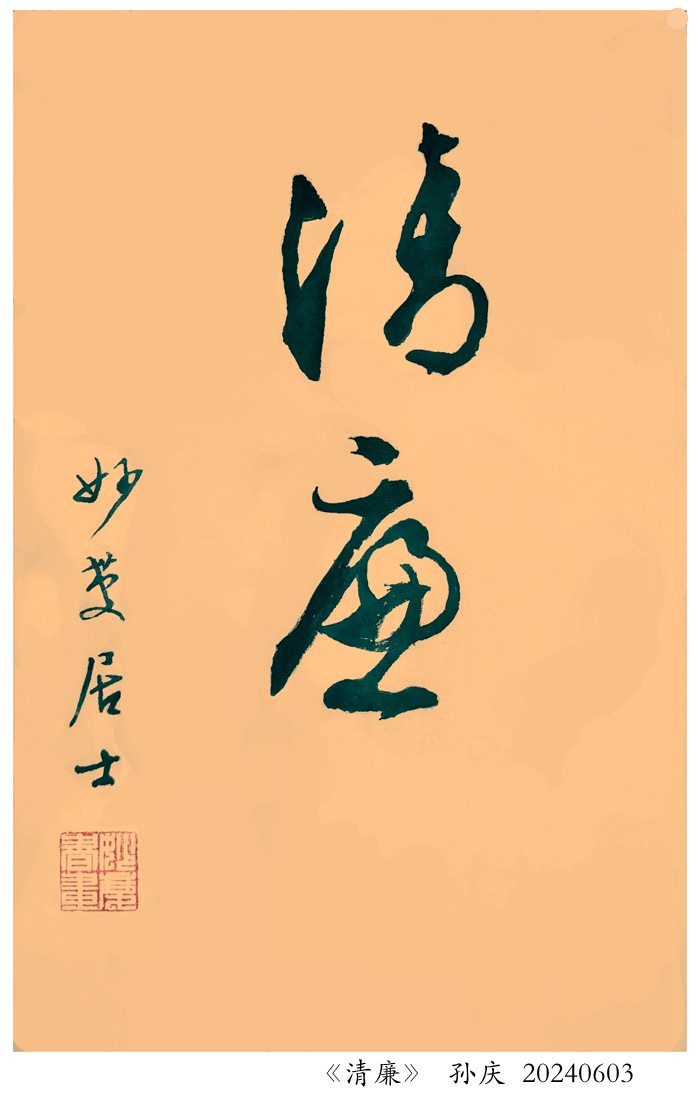 清廉
妙 居士
妙 書畫
《清廉》 孙庆 20240603